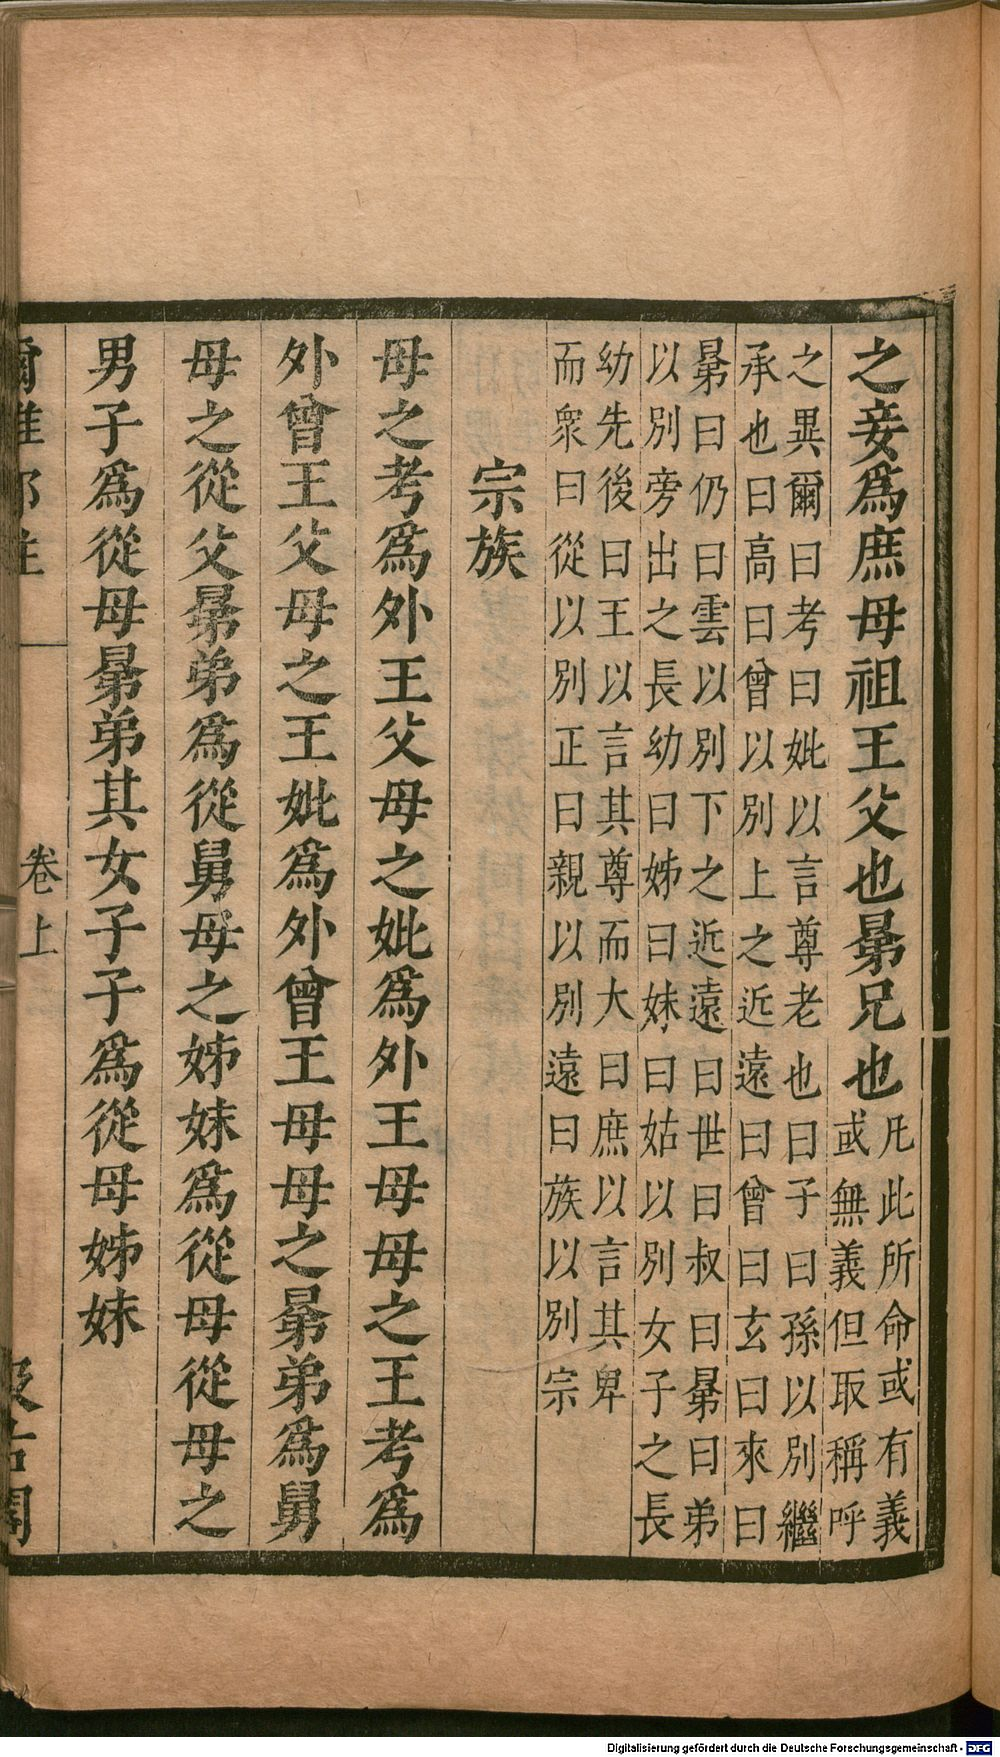 之妾為庶母祖王父也晜兄也凡此所命或有義
或無義但取稱呼
之異爾曰考曰妣以言尊老也曰子曰孫以別繼
承也曰高曰曾以別上之近遠曰曾曰玄曰來曰
晜曰仍曰雲以別下之近遠曰世曰叔曰晜曰弟
以別旁出之長幼曰姊曰妹曰姑以別女子之長
幼先後曰王以言其尊而大曰庶以言其卑
而衆曰從以別正曰親以別遠曰族以別宗
宗族
母之考為外王父母之妣為外王母母之王考為
外曾王父母之王妣為外曾王母母之晜弟為舅
母之從父晜弟為從舅母之姊妹為從母從母之
男子為從母晜弟其女子子為從母姊妹
爾雅鄭注
卷上
汲古閣
Digitalisierung gefördert durch die Deutsche Forschungsgemeinschaft - DFG